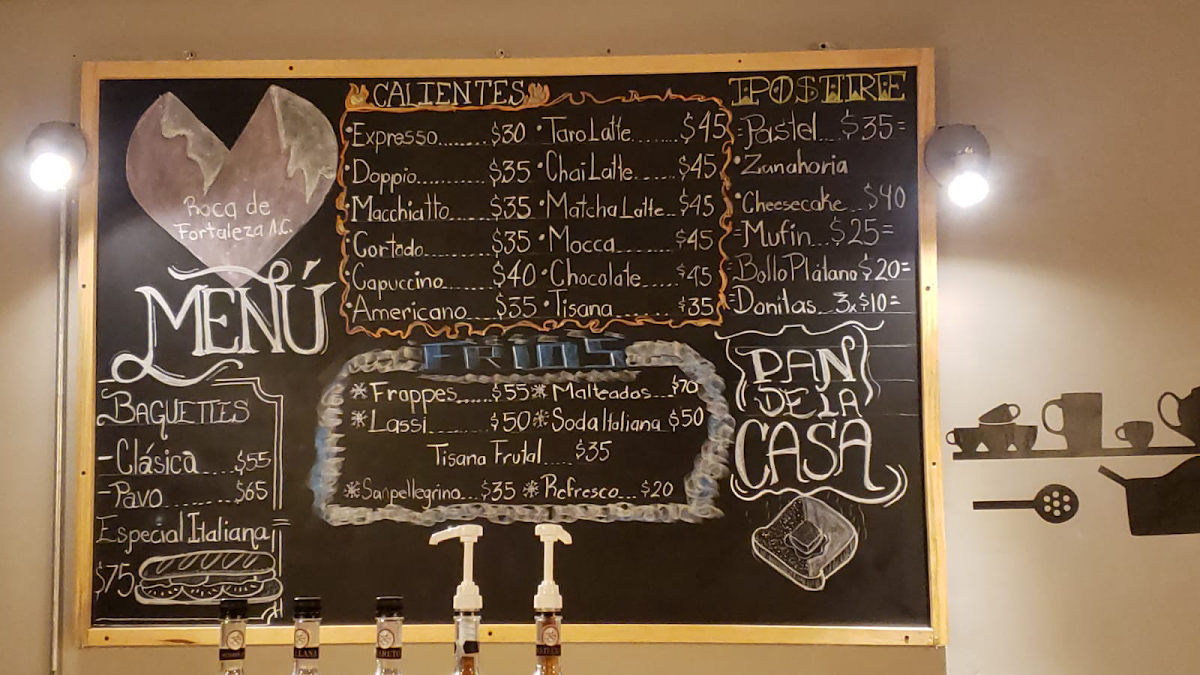 Roca de
Fortaleza A.C.
MENÚ
BAGUETTES
-Clásica....$55
-Pavo.......$65
Especial Italiana
$75
CALIENTES
•Expresso........$30
•Doppio...........$35
•Macchiatto.....$35
•Cortado.........$35
•Capuccino......$40
•Americano.....$35
•Taro Latte.......$45
•Chai Latte......$45
•Matcha Latte..$45
•Mocca........$45
•Chocolate....$45
•Tisana........$35
FRIOS
*Frappes......$55 *Malteadas...$70
*Lassi..........$50 *Soda Italiana $50
Tisana Frutal....$35
*Sanpellegrino...$35 *Refresco...$20
POSTRE
=Pastel...$35=
•Zanahoria
•Cheesecake..$40
=Mufin...$25=
=Bollo Plátano $20=
=Donitas..3x$10=
PAN
DE LA
CASA
LLANA
ARETO